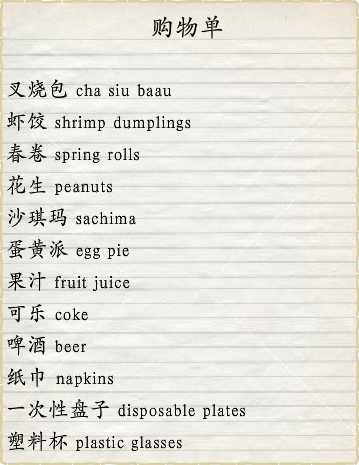 购物单
叉烧包 cha siu baau
虾饺 shrimp dumplings
春卷 spring rolls
花生 peanuts
沙琪玛 sachima
蛋黄派 egg pie
果汁 fruit juice
可乐 coke
啤酒 beer
纸巾 napkins
一次性盘子 disposable plates
塑料杯 plastic glasses